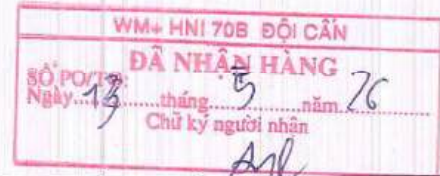 WM+ HNI 70B ĐỘI CẤN
ĐÃ NHẬN HÀNG
SỐ PO/
Ngày 13 tháng 5 năm 26
Chữ ký người nhận